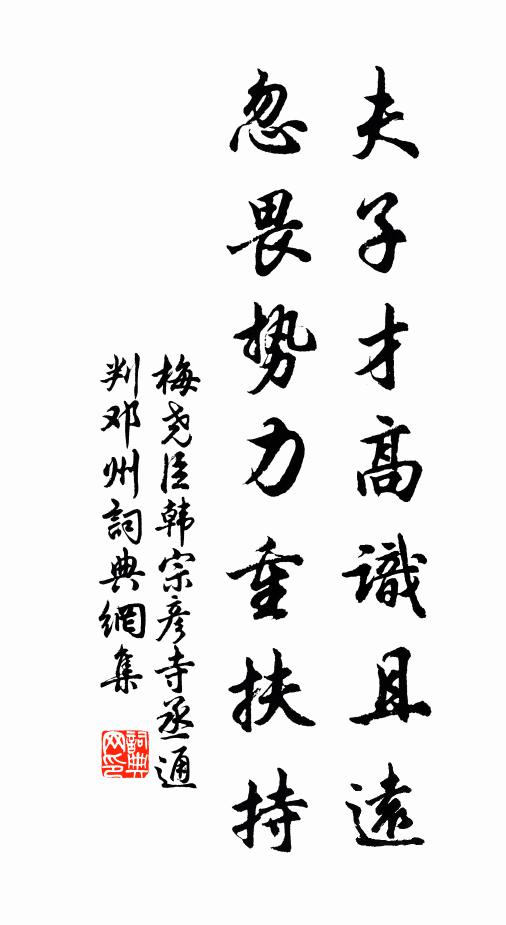 夫子才高識且遠
忽畏势力重扶持
梅尧臣韩宗彦寺丞通
判邓州詞典網集
詞典网印